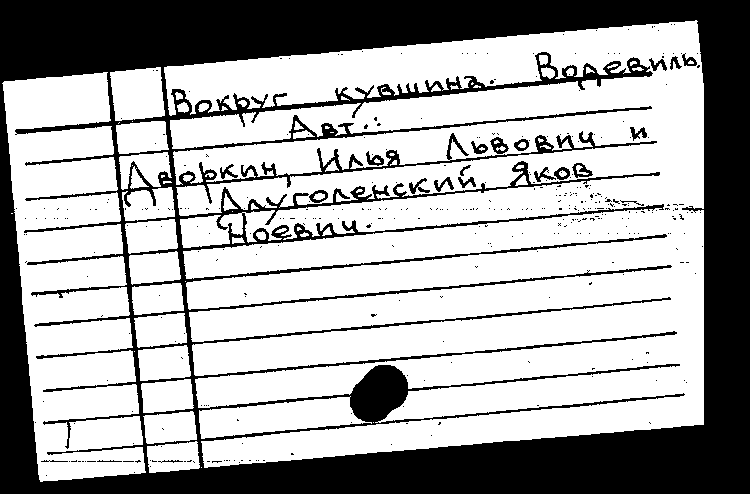 Вокруг кувшина. Водевиль
Авт.:
Дворкин, Илья Львович и
Длуголенский, Яков
Ноевич.